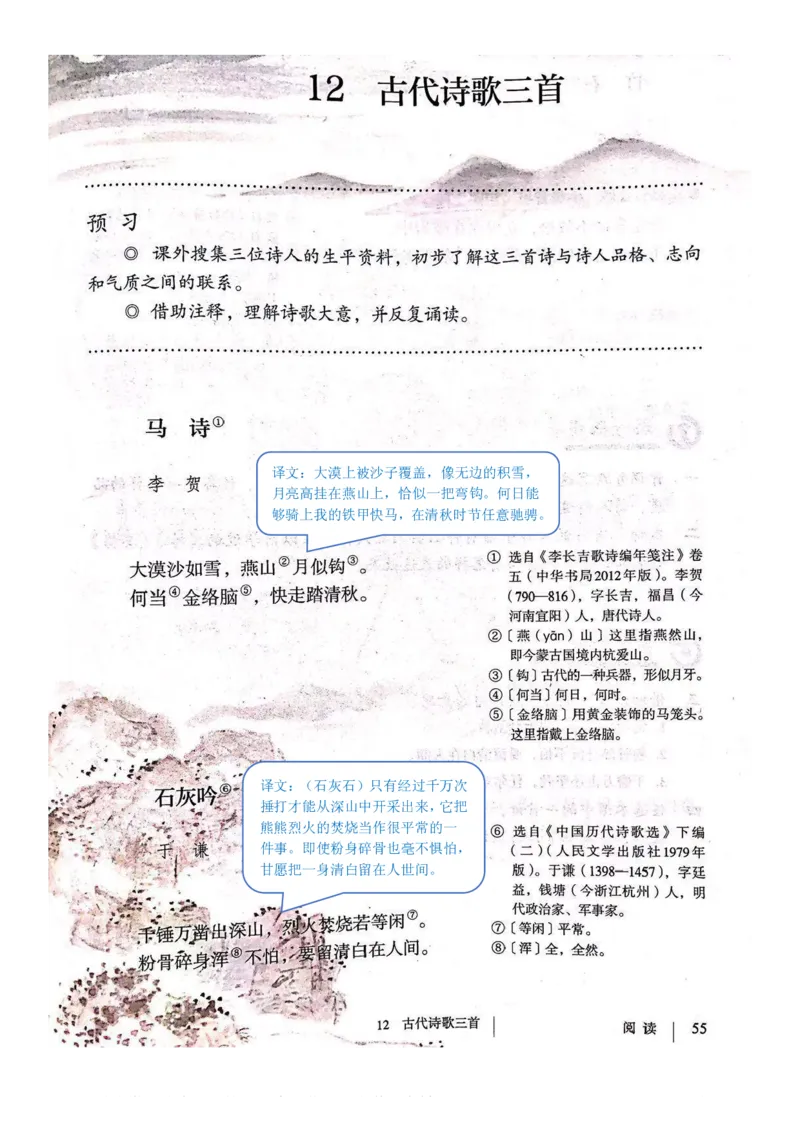 12 古代诗歌三首
预 习
◎ 课外搜集三位诗人的生平资料，初步了解这三首诗与诗人品格、志向
和气质之间的联系。
◎ 借助注释，理解诗歌大意，并反复诵读。
马 诗①
李 贺
译文：大漠上被沙子覆盖，像无边的积雪，
月亮高挂在燕山上，恰似一把弯钩。何日能
够骑上我的铁甲快马，在清秋时节任意驰骋。
大漠沙如雪，燕山②月似钩③。
何当④金络脑⑤，快走踏清秋。
① 选自《李长吉歌诗编年笺注》卷
五（中华书局2012年版）。李贺
（790—816），字长吉，福昌（今
河南宜阳）人，唐代诗人。
②〔燕（yān）山〕这里指燕然山，
即今蒙古国境内杭爱山。
③〔钩〕古代的一种兵器，形似月牙。
④〔何当〕何日，何时。
⑤〔金络脑〕用黄金装饰的马笼头。
这里指戴上金络脑。
石灰吟⑥
于 谦
译文：（石灰石）只有经过千万次
捶打才能从深山中开采出来，它把
熊熊烈火的焚烧当作很平常的一
件事。即使粉身碎骨也毫不惧怕，
甘愿把一身清白留在人世间。
千锤万凿出深山，烈火焚烧若等闲⑦。
粉骨碎身浑⑧不怕，要留清白在人间。
⑥ 选自《中国历代诗歌选》下编
（二）（人民文学出版社1979年
版）。于谦（1398—1457），字廷
益，钱塘（今浙江杭州）人，明
代政治家、军事家。
⑦〔等闲〕平常。
⑧〔浑〕全，全然。
12 古代诗歌三首
阅 读 55